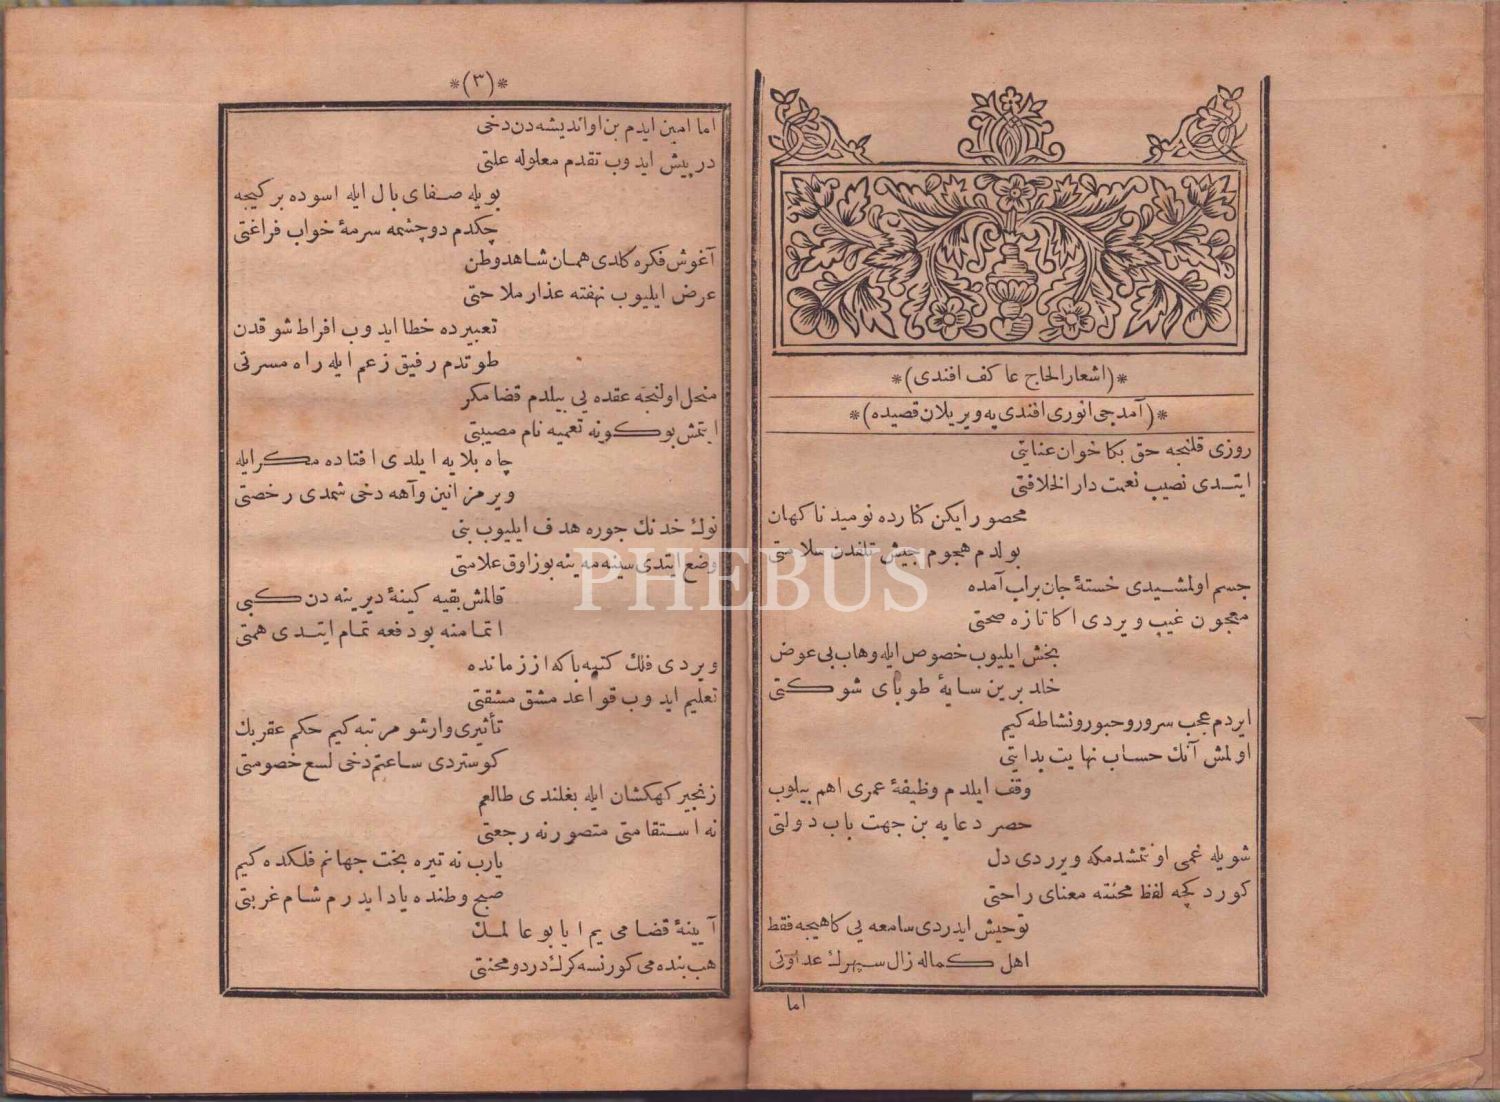 *(اشعار الحاج عاكف افندی)*
*(آمدجی انوری افندی یه ویریلان قصیده)*
روزی قلنجه حق بكا خوان عنایتی
ایتدی نصیب نعمت دار الخلافتی
محصور ایكن كنارده نومید ناكهان
بولدم هجوم جیش تلفدن سلامتی
جسم اولمشیدی خستهٔ جان براب آمده
معجون غیب ویردی اكا تازه صحتی
بخش ایلیوب خصوص ایله وهاب بی عوض
خلد برین سایهٔ طوبای شوكتی
ایردم عجب سرور و حبور و نشاطه كیم
اولمش آنك حساب نهایت بدایتی
وقف ایلدم وظیفهٔ عمری اهم بیلوب
حصر دعایه بن جهت باب دولتی
شویله غمی اونتمشدمكه ویرردی دل
كوردكچه لفظ محنته معنای راحتی
توحیش ایدردی سامعه یی كاهیجه فقط
اهل كماله زال سپهرك عداوتی
اما
*(٣)*
اما امین ایدم بن او اندیشه دن دخی
درپیش ایدوب تقدم معلوله علتی
بویله صفای بال ایله اسوده بر كیجه
چكدم دوچشمه سرمهٔ خواب فراغتی
آغوش فكره كلدی همان شاهد وطن
عرض ایلیوب نهفته عذار ملاحتی
تعبیرده خطا ایدوب افراط شوقدن
طوتدم رفیق زعم ایله راه مسرتی
منحل اولنجه عقده یی بیلدم قضا مكر
ایتمش بوكونه تعمیه نام مصیبتی
چاه بلایه ایلدی افتاده مكر ایله
ویرمز انین و آهه دخی شمدی رخصتی
نوك خدنك جوره هدف ایلیوب بنی
وضع ایتدی سینه مه ینه بوزاوق علامتی
قالمش بقیه كینهٔ دیرینه دن كبی
اتمامنه بو دفعه تمام ایتدی همتی
ویردی فلك كتبه باكه از زمانده
تعلیم ایدوب قواعد مشق مشقتی
تأثیری وار شو مرتبه كیم حكم عقربك
كوستردی ساعتم دخی لسع خصومتی
زنجیر كهكشان ایله بغلندی طالعم
نه استقامتی متصور نه رجعتی
یارب نه تیره بخت جهانم فلكده كیم
صبح وطنده یاد ایدرم شام غربتی
آیینهٔ قضامی یم ایا بو عالمك
هب بنده می كورنسه كرك درد و محنتی
PHEBUS